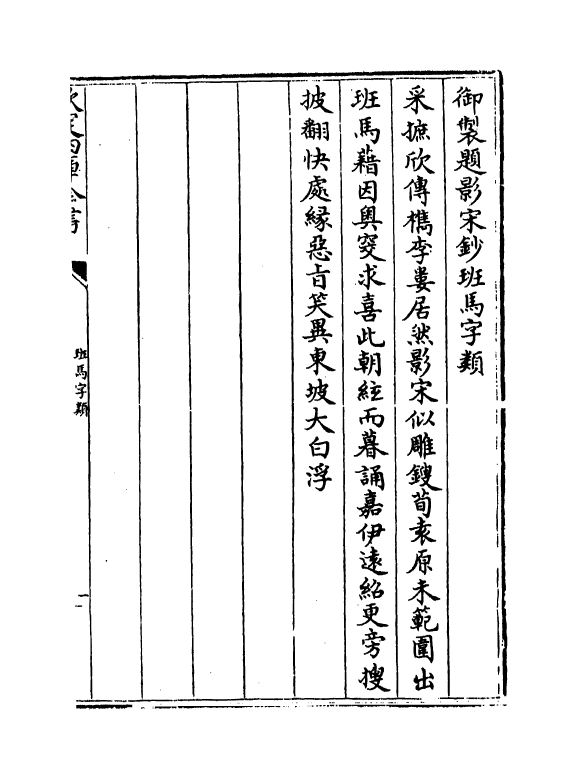 御製題影宋鈔班馬字類
采摭欣傳檇李婁居然影宋似雕鎪荀袁原未範圍出
班馬藉因奥窔求喜此朝絃而暮誦嘉伊遠紹更旁搜
披翻快處縁惡旨笑異東坡大白浮
欽定四庫全書
班馬字類
一